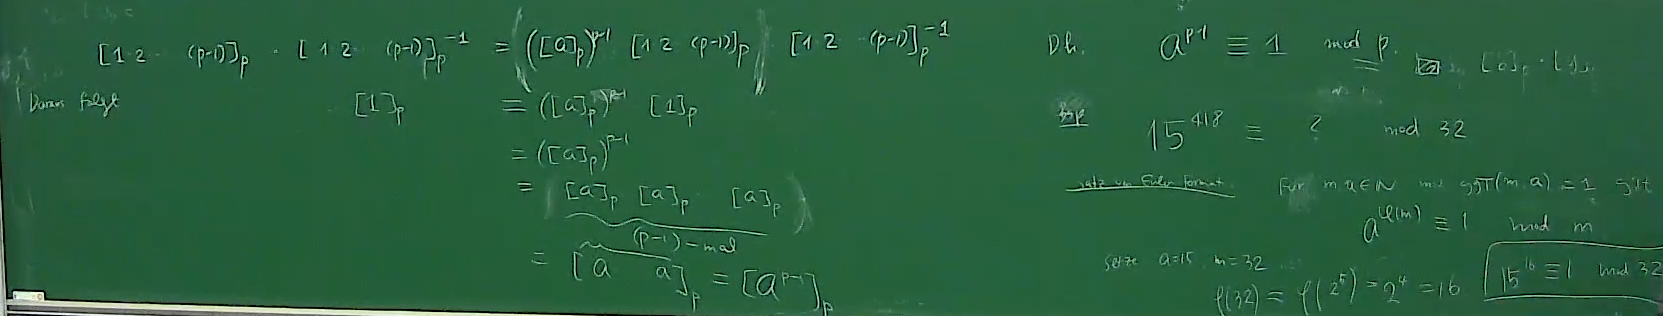 [1·2·  (p-1)]_p · [1·2  (p-1)]_p^{-1} = (([a]_p)^{p-1} [1·2 (p-1)]_p) [1·2 ·· (p-1)]_p^{-1}
Daraus folgt [1]_p = ([a]_p)^{p-1} [1]_p
= ([a]_p)^{p-1}
= ([a]_p [a]_p [a]_p)
(p-1)-mal
= [a  a]_p = [a^{p-1}]_p
D.h. a^{p-1} ≡ 1 mod p.
Bsp 15^{418} ≡ ? mod 32
Satz von Euler Fermat. Für m, a ∈ ℕ mit ggT(m, a) = 1 gilt
a^{φ(m)} ≡ 1 mod m
Setze a=15, m=32
φ(32) = φ(2^5) = 2^4 = 16 15^{16} ≡ 1 mod 32